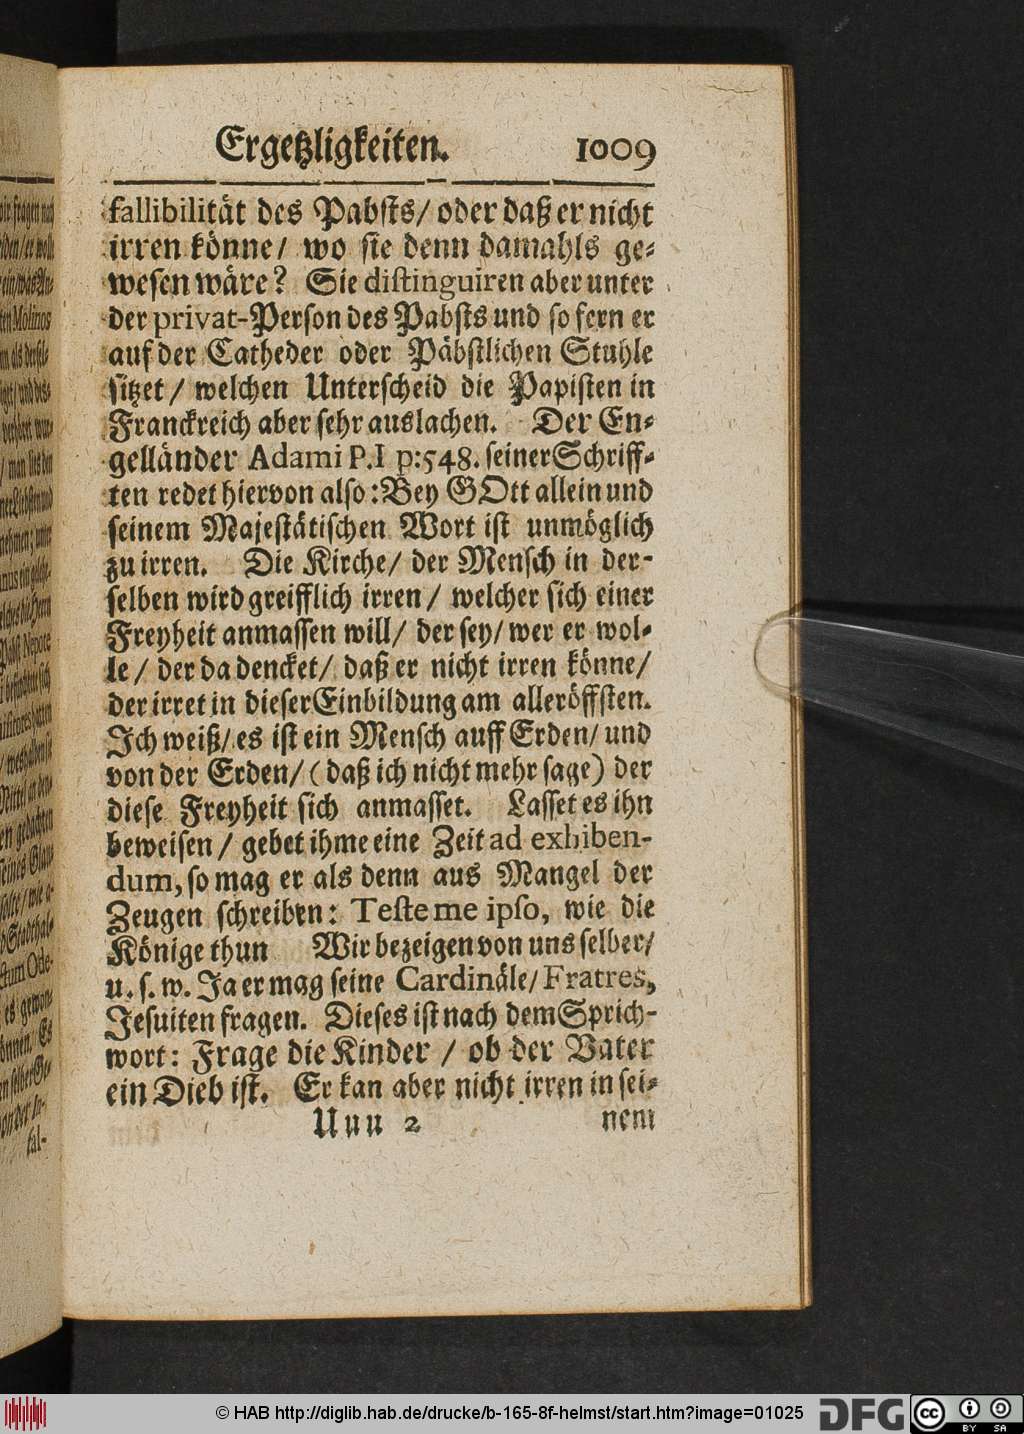 Ergetzligkeiten. 1009
fallibilität des Pabsts/ oder daß er nicht
irren könne/ wo sie denn damahls ge-
wesen wäre? Sie distinguiren aber unter
der privat-Person des Pabsts und so fern er
auf der Catheder oder Päbstlichen Stuhle
sitzet/ welchen Unterscheid die Papisten in
Franckreich aber sehr auslachen. Der En-
gelländer Adami P.I p:548. seiner Schriff-
ten redet hiervon also: Bey GOtt allein und
seinem Majestätischen Wort ist unmöglich
zu irren. Die Kirche/ der Mensch in der-
selben wird greifflich irren/ welcher sich einer
Freyheit anmassen will/ der sey/ wer er wol-
le/ der da dencket/ daß er nicht irren könne/
der irret in dieser Einbildung am alleröffsten.
Ich weiß/ es ist ein Mensch auff Erden/ und
von der Erden/ (daß ich nicht mehr sage) der
diese Freyheit sich anmasset. Lasset es ihn
beweisen/ gebet ihme eine Zeit ad exhiben-
dum, so mag er als denn aus Mangel der
Zeugen schreiben: Teste me ipso, wie die
Könige thun Wir bezeigen von uns selber/
u. s. w. Ja er mag seine Cardinäle/ Fratres,
Jesuiten fragen. Dieses ist nach dem Sprich-
wort: Frage die Kinder/ ob der Vater
ein Dieb ist. Er kan aber nicht irren in sei-
Uuu 2 nem
© HAB http://diglib.hab.de/drucke/b-165-8f-helmst/start.htm?image=01025 DFG cc BY SA